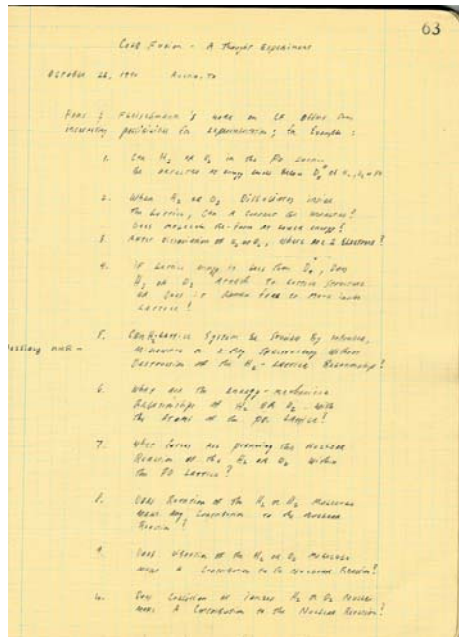 63
Cold Fusion - A Thought Experiment
October 26, 1990 Austin, TX
Pons & Fleischmann's work on CF offers some
interesting possibilities for experimentation; for example:
1. Can H2 or D2 in the PD Lattice
be at energy levels below
2. When H2 or D2 Dissociates inside
the Lattice, Can a current be measured?
Does molecule Re-form at lower energy?
3. After Dissociation of H2 or D2, where are 2 electrons?
4. If Lattice energy is less than D0, Does
H2 or D2 attach to Lattice structure
or does it remain free to move in the
Lattice?
5. Can H2-Lattice System be Studied By infrared,
or X-Ray Spectroscopy without
Destruction of the H2 - Lattice Relationship?
6. What are the energy-mechanics
Relationships of H2 or D2 with
the atoms of the PD Lattice?
7. What forces are promoting the Nuclear
Reaction of the H2 or D2 within
the PD Lattice?
8. Does Rotation of the H2 or D2 Molecule
make any Contribution to the Nuclear
Reaction?
9. Does Vibration of the H2 or D2 Molecule
make a Contribution to the Nuclear Reaction?
10. Does Collision of ionized H2 or D2 Nuclei
make A Contribution to the Nuclear Reaction?